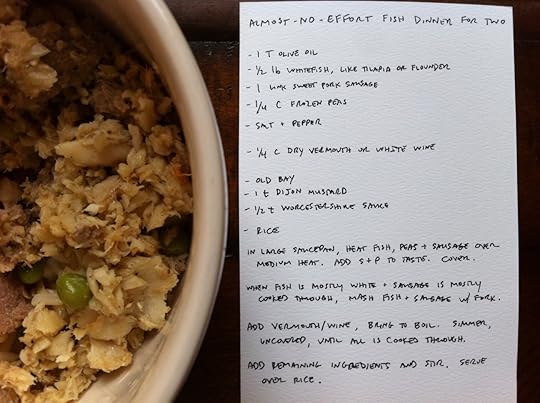 ALMOST-NO-EFFORT FISH DINNER FOR TWO
- 1 T OLIVE OIL
- 1/2 lb WHITEFISH, LIKE TILAPIA OR FLOUNDER
- 1 LINK SWEET PORK SAUSAGE
- 1/4 C FROZEN PEAS
- SALT + PEPPER
- 1/4 C DRY VERMOUTH OR WHITE WINE
- OLD BAY
- 1 t DIJON MUSTARD
- 1/2 t WORCESTERSHIRE SAUCE
- RICE
IN LARGE SAUCEPAN, HEAT FISH, PEAS + SAUSAGE OVER
MEDIUM HEAT. ADD S+P TO TASTE. COVER.
WHEN FISH IS MOSTLY WHITE + SAUSAGE IS MOSTLY
COOKED THROUGH, MASH FISH + SAUSAGE W/ FORK.
ADD VERMOUTH/WINE, BRING TO BOIL. SIMMER,
UNCOVERED, UNTIL ALL IS COOKED THROUGH.
ADD REMAINING INGREDIENTS AND STIR. SERVE
OVER RICE.